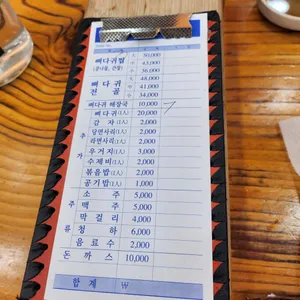 뼈다귀찜 대 50,000
(콩나물, 건찜) 중 43,000
소 36,000
뼈다귀 대 48,000
전골 중 41,000
소 34,000
뼈다귀 해장국 10,000
뼈다귀(1人) 20,000
감자(1人) 2,000
추 당면사리(1人) 2,000
라면사리(1人) 2,000
가 우거지(1人) 3,000
수제비(1人) 2,000
볶음밥(1人) 2,000
공기밥(1人) 1,000
소주 5,000
주 맥주 5,000
막걸리 4,000
류 청하 6,000
음료수 2,000
돈까스 10,000
합계 ₩